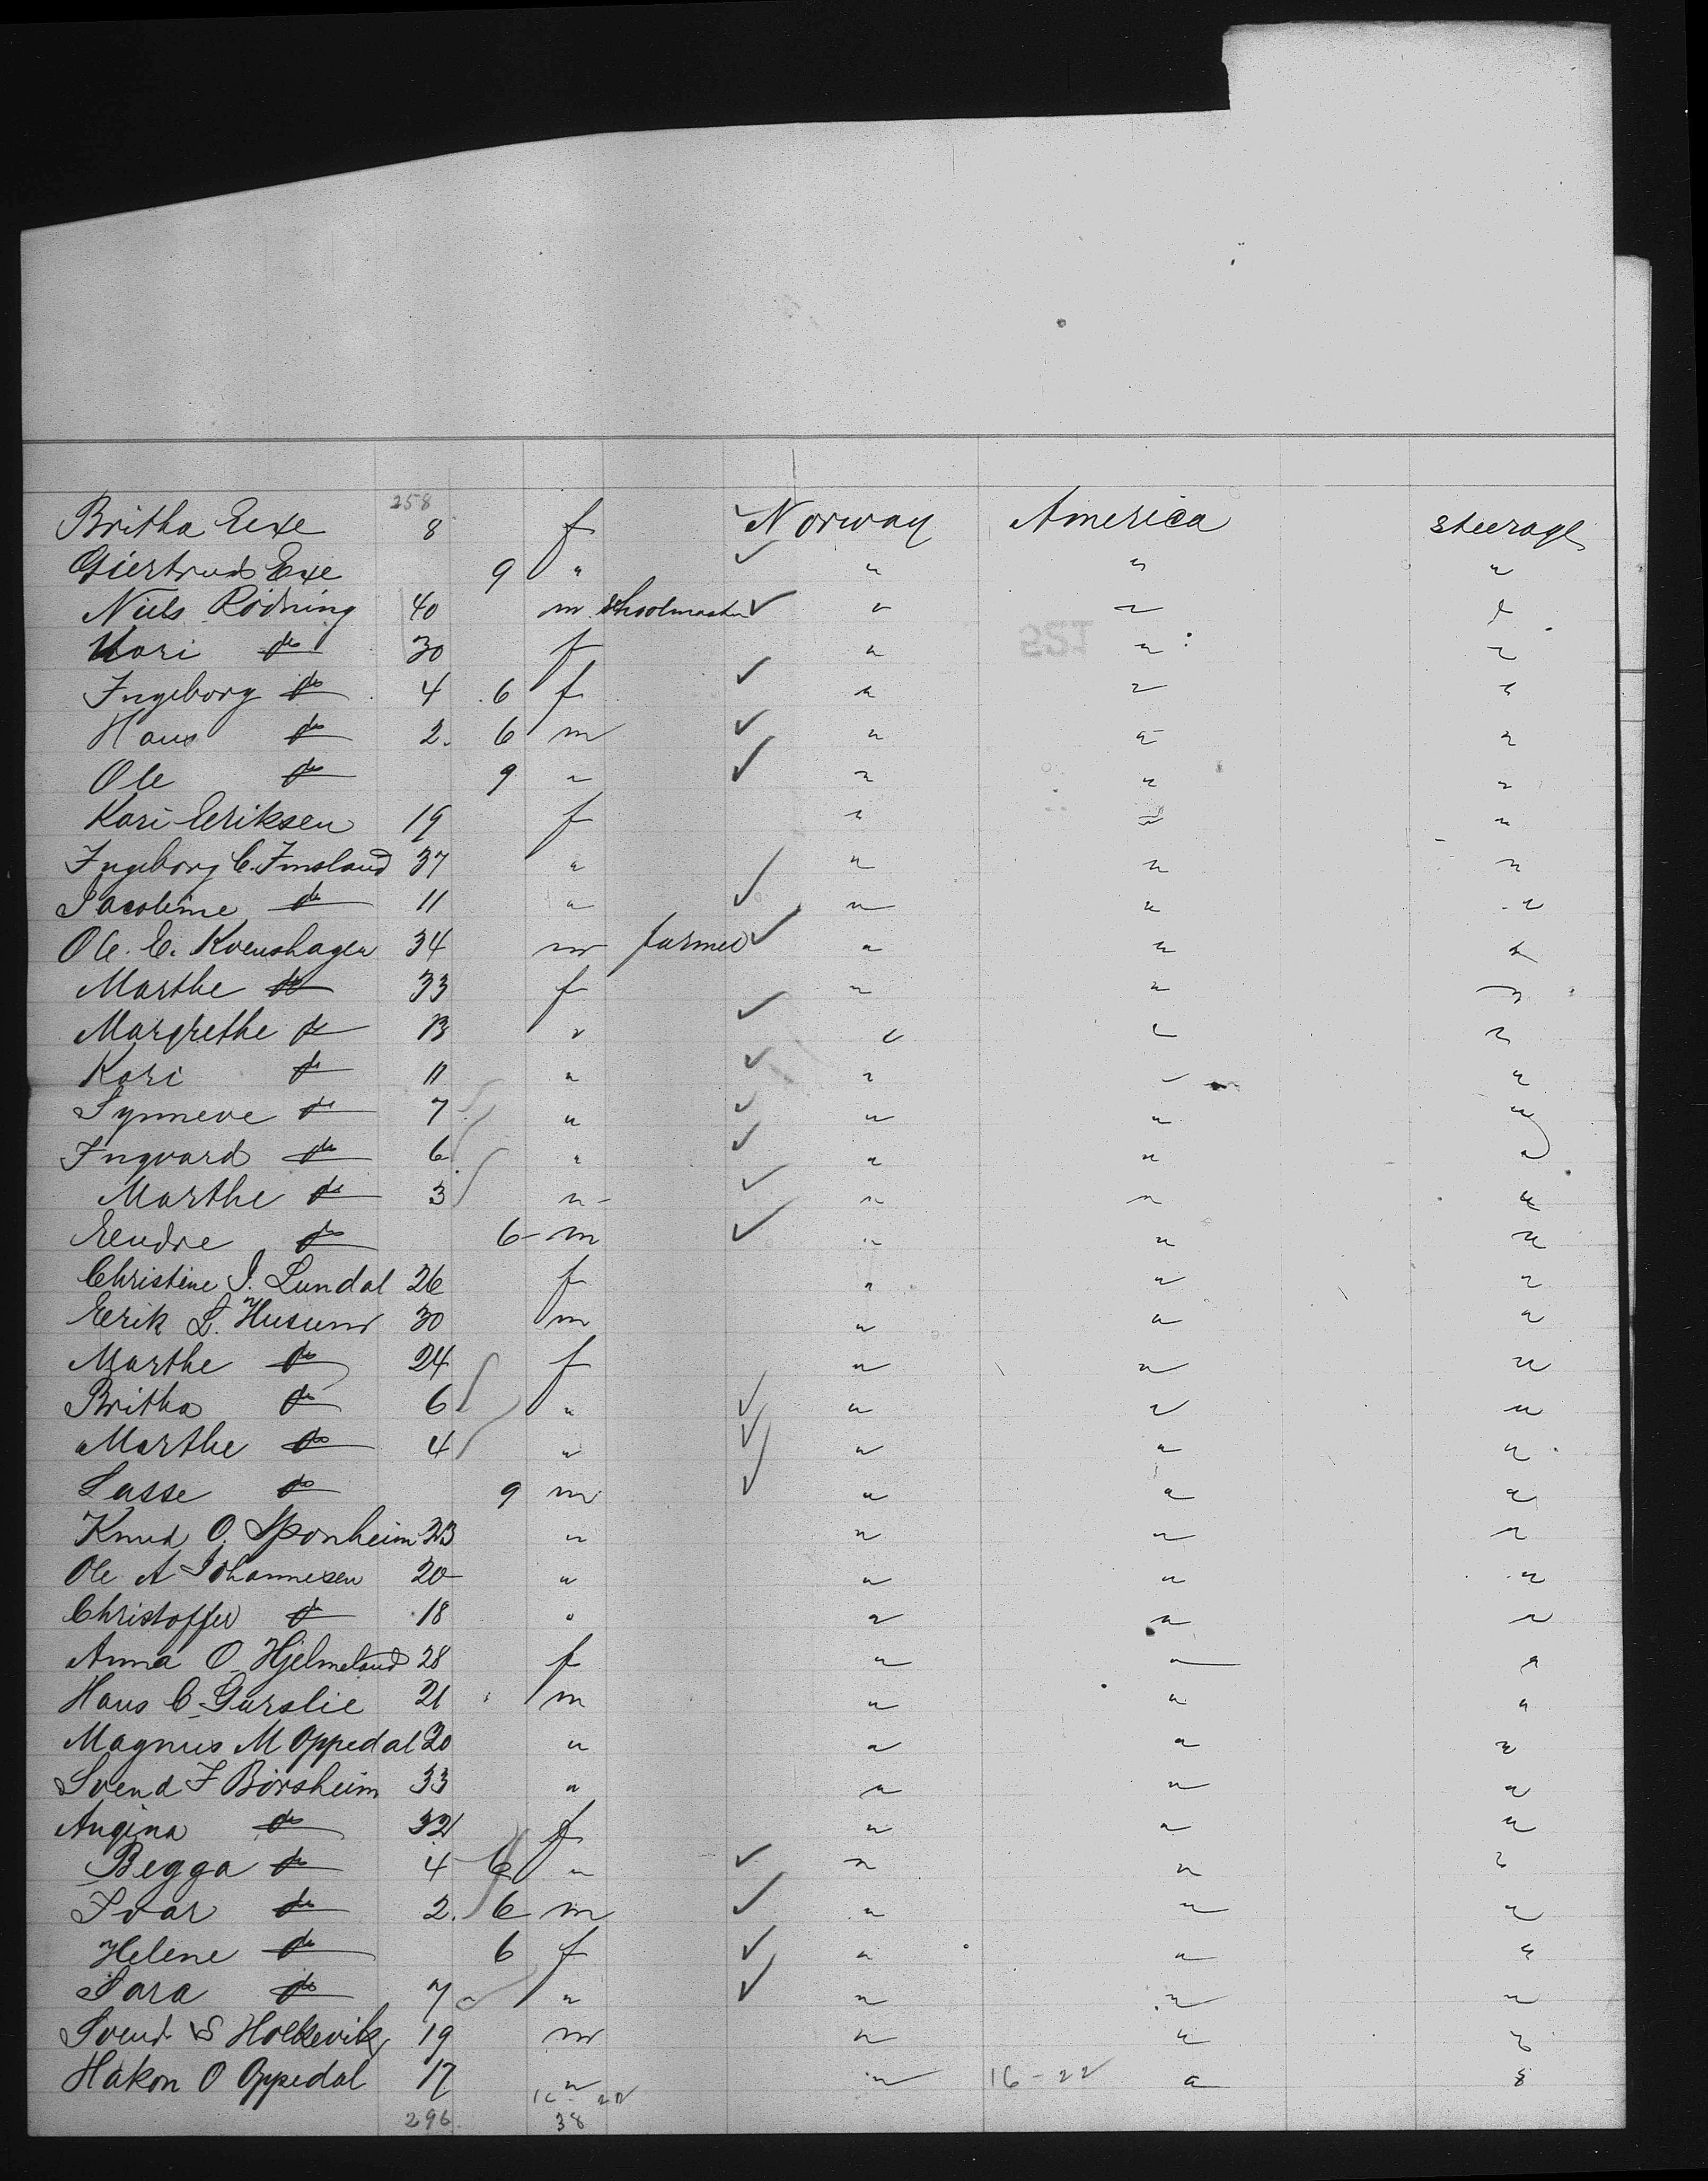 258
Britha Eexe 8 f Norway America steerage
Giertrud Exe 9 " " " "
Niels Rödning 40 m schoolmaster " " "
Kari do 30 f " " "
Ingeborg do 4 6 f " " "
Hans do 2. 6 m " " "
Ole do 9 " " " "
Kari Eeriksen 19 f " " "
Ingeborg C. Imsland 37 " " " "
Jacobine do 11 " " " "
Ole. E. Kvenshagen 34 m farmer " " "
Marthe do 33 f " " "
Margrethe do 13 " " " "
Kari do 11 " " " "
Synneve do 7 " " " "
Ingvard do 6 " " " "
Marthe do 3 " " " "
Eendre do 6 m " " "
Christine J. Lundal 26 f " " "
Eerik L. Husum 30 m " " "
Marthe do 24 f " " "
Britha do 6 " " " "
Marthe do 4 " " " "
Lasse do 9 m " " "
Knud O. Sponheim 23 " " " "
Ole A Johannesen 20 " " " "
Christoffer do 18 " " " "
Anna O. Hjelmeland 28 f " " "
Hans C. Gurslie 21 m " " "
Magnus M Oppedal 20 " " " "
Svend I Börsheim 33 " " " "
Angina do 32 f " " "
Begga do 4 6 " " " "
Ivar do 2. 6 m " " "
Helene do 6 f " " "
Sara do 7 " " " "
Svend S Holkevik 19 m " " "
Hakon O Oppedal 17 " " 16-22 " "
16 22
296. 38